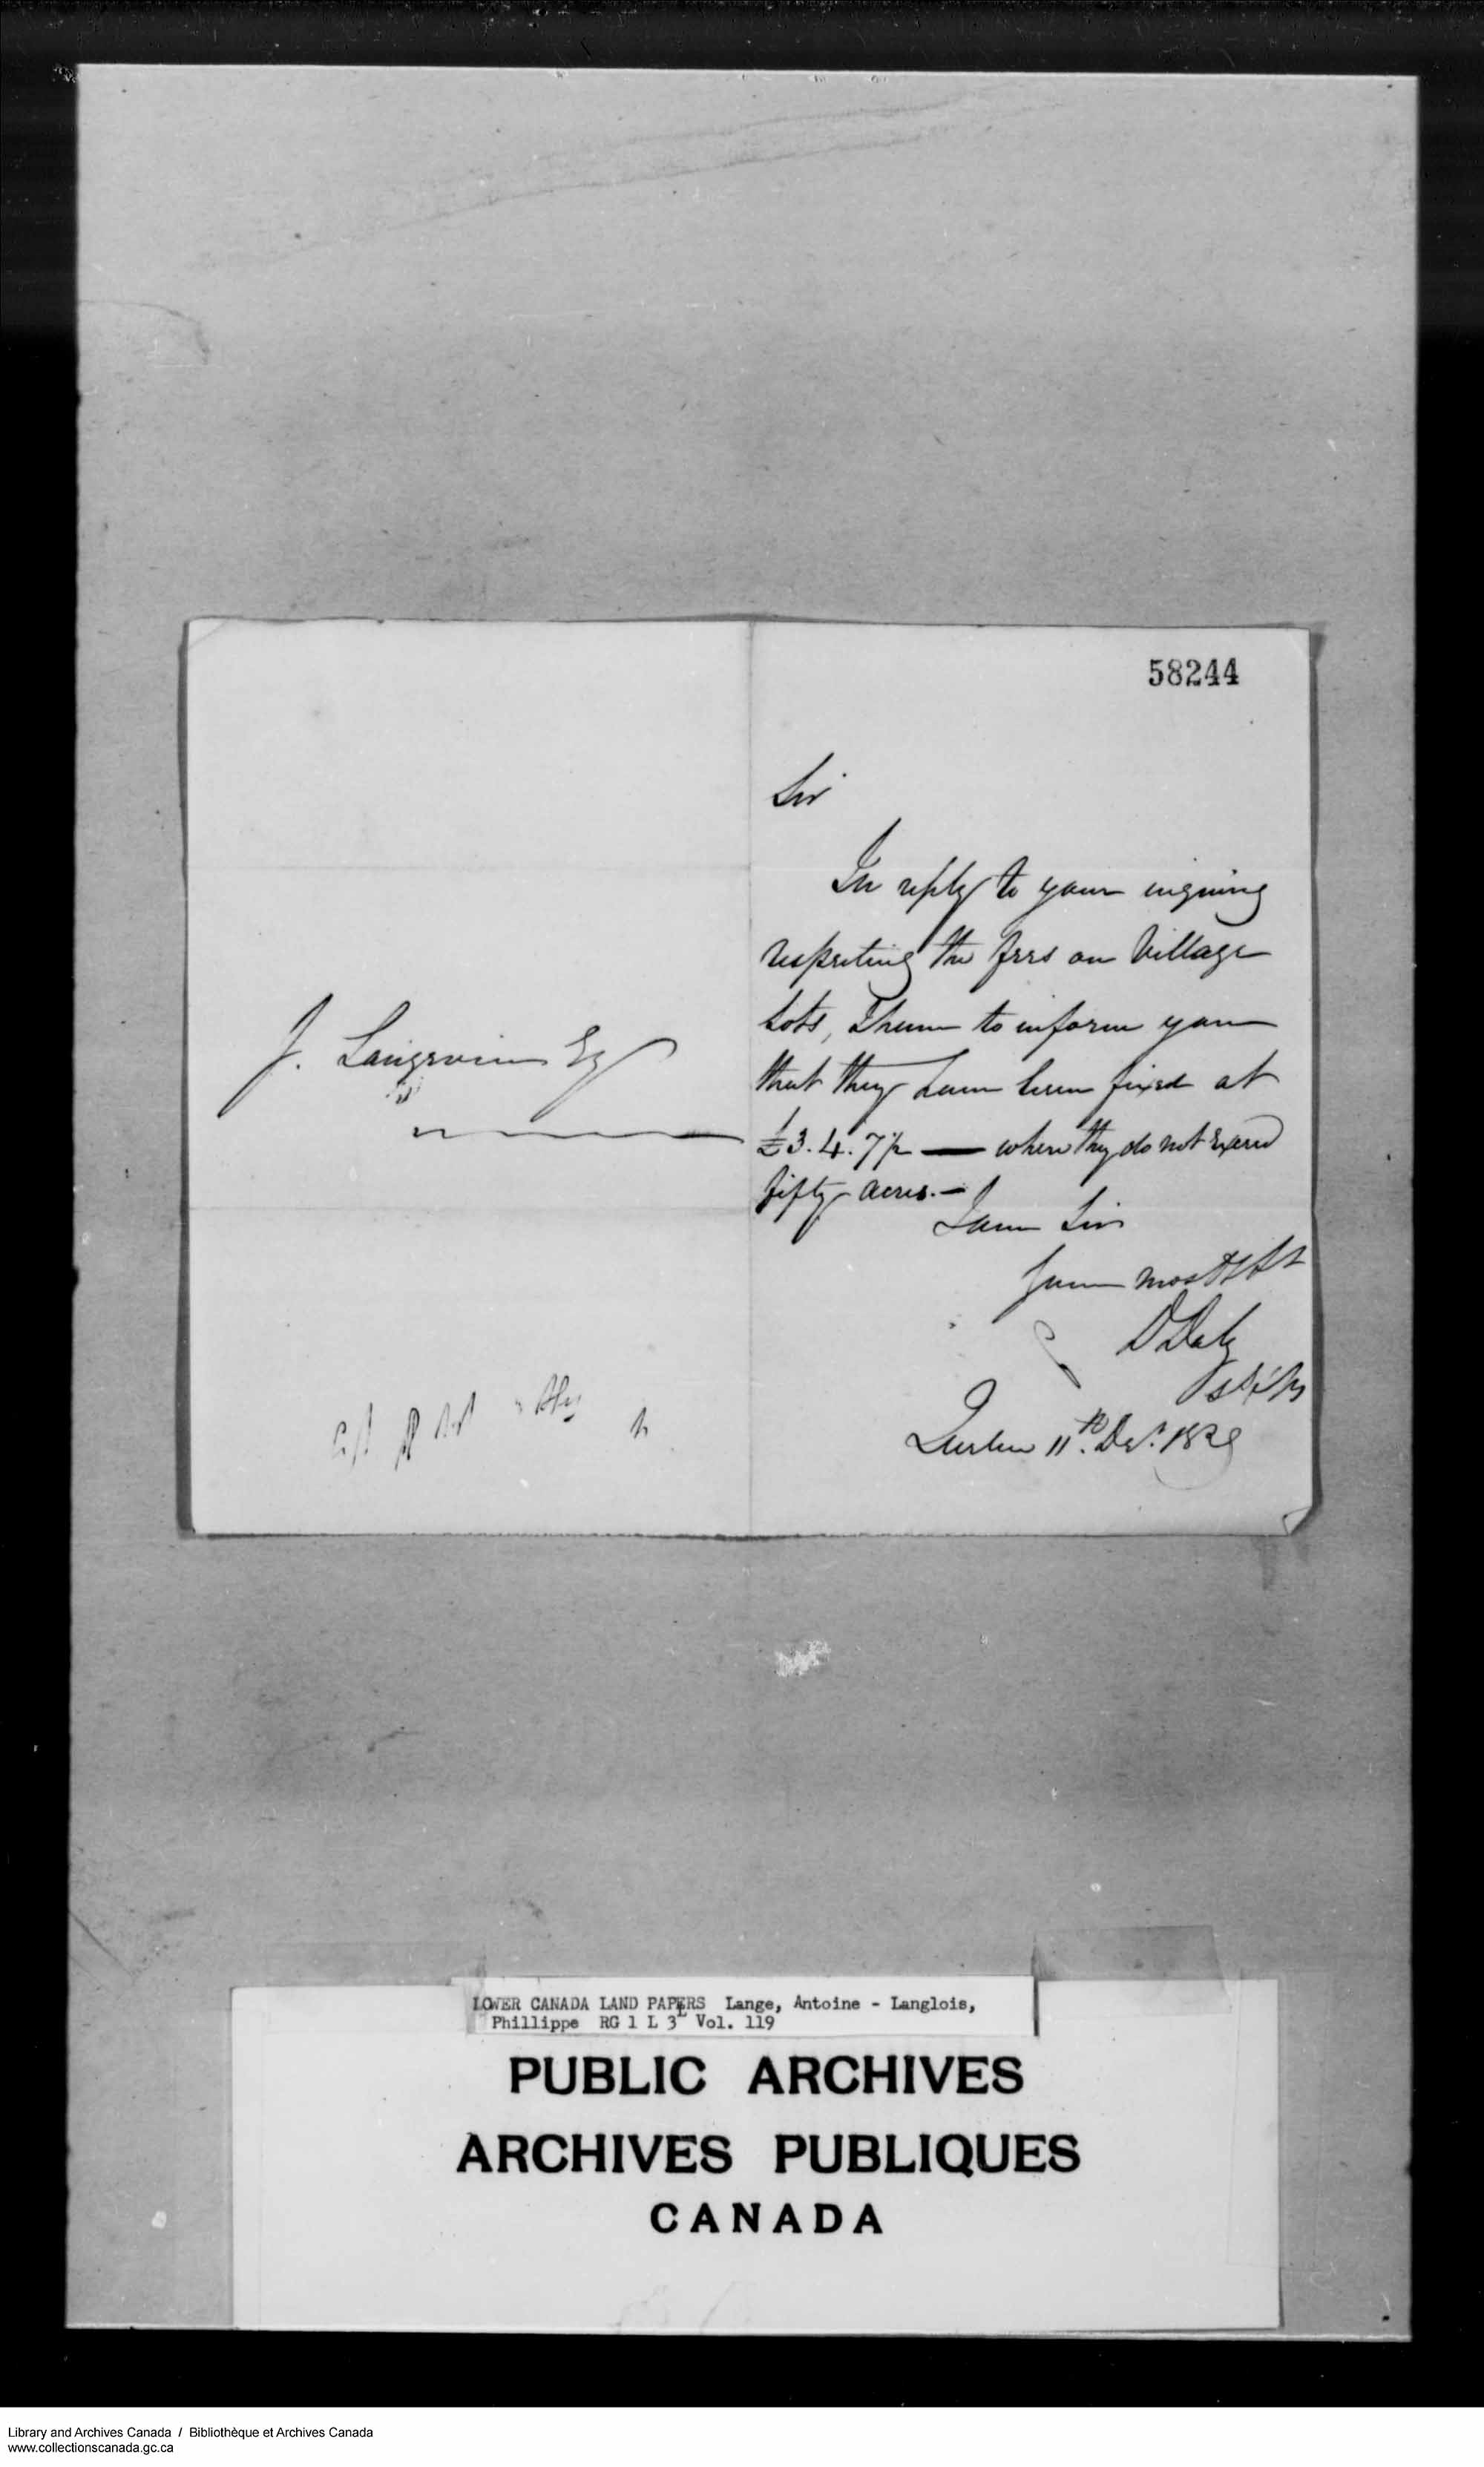 58244
Sir
In reply to your inquiry
respecting the fees on Village
Lots, I have to inform you
that they have been fixed at
£3.4.7½ — where they do not exceed
fifty acres. —
I am Sir
Your most
D Daly
Quebec 11th Decr. 1828
J. Langevin Esq
LOWER CANADA LAND PAPERS Lange, Antoine - Langlois,
Phillippe RG 1 L 3L Vol. 119
PUBLIC ARCHIVES
ARCHIVES PUBLIQUES
CANADA
Library and Archives Canada / Bibliothèque et Archives Canada
www.collectionscanada.gc.ca